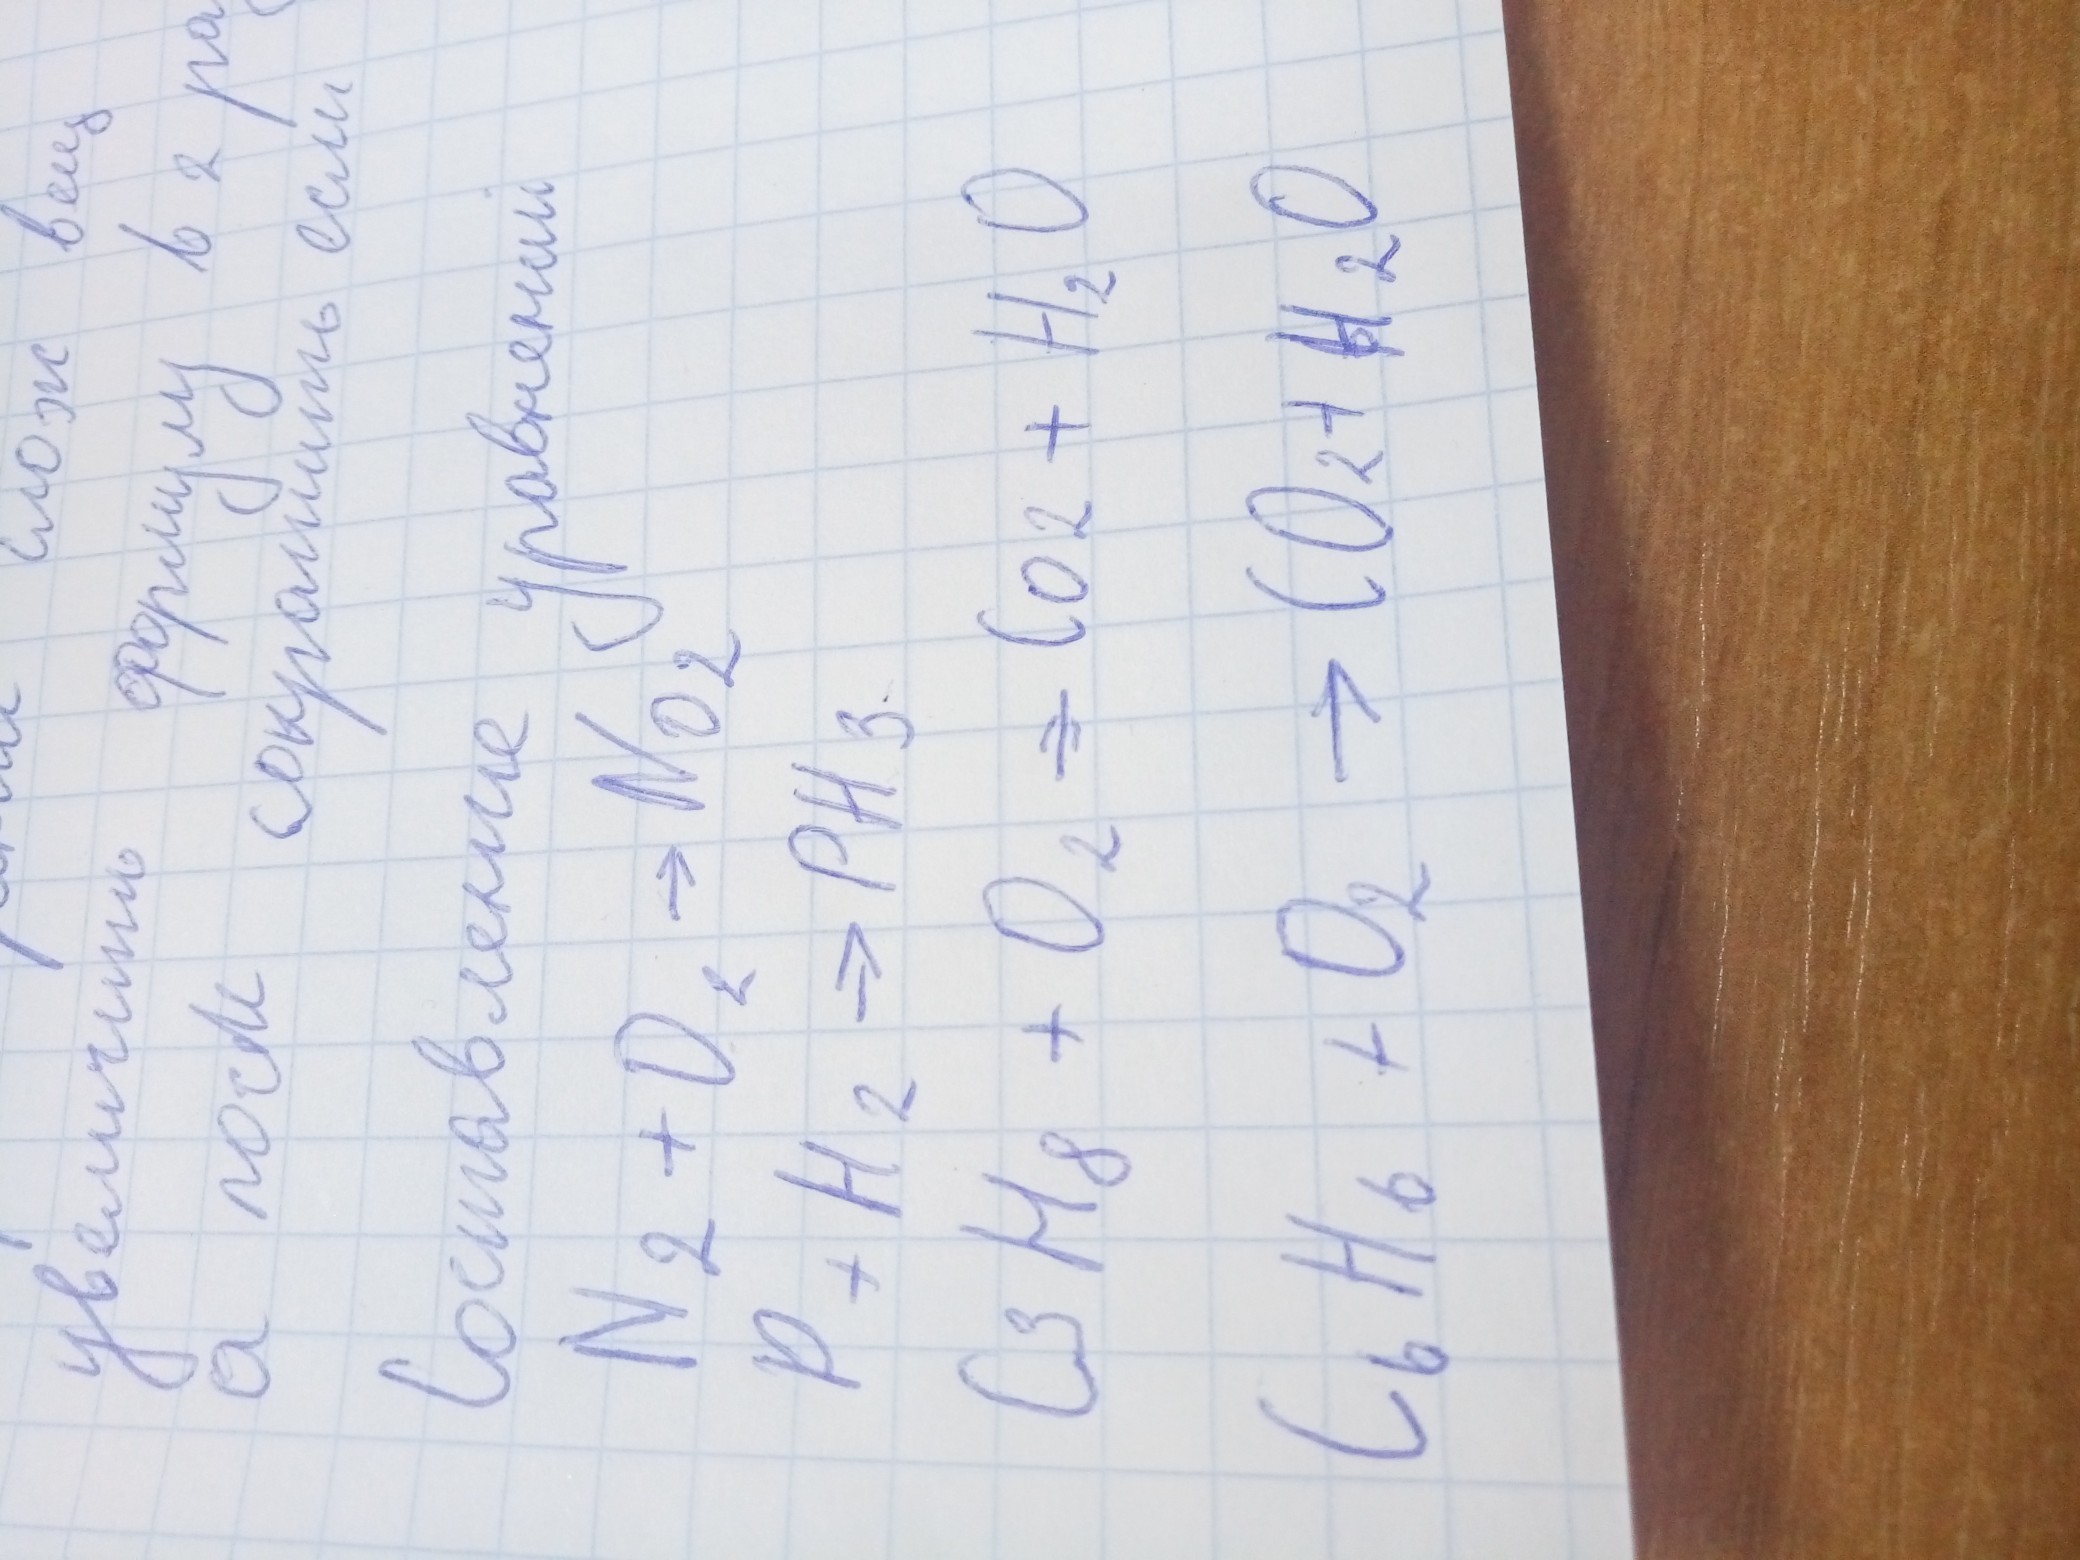 слож вещ
увеличить формулу в 2 ра
а посм сократить если
Составление уравнений
N2 + O2 → NO2
P + H2 → PH3
C3H8 + O2 ⇒ CO2 + H2O
C6H6 + O2 → CO2 + H2O